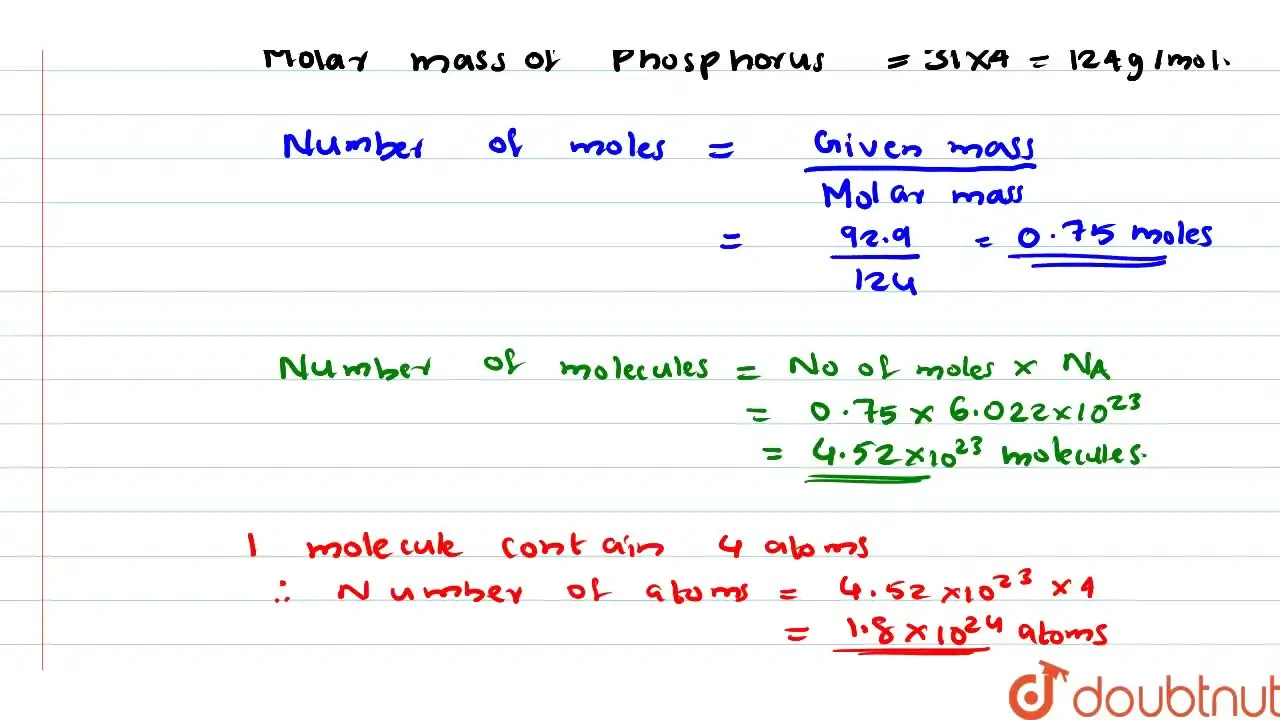 Molar mass of Phosphorus = 31×4 = 124g/mol.
Number of moles = Given mass
Molar mass
= 92.9 = 0.75 moles
124
Number of molecules = No of moles × NA
= 0.75 × 6.022×10²³
= 4.52×10²³ molecules.
1 molecule contain 4 atoms
∴ Number of atoms = 4.52×10²³ × 4
= 1.8×10²⁴ atoms
doubtnut